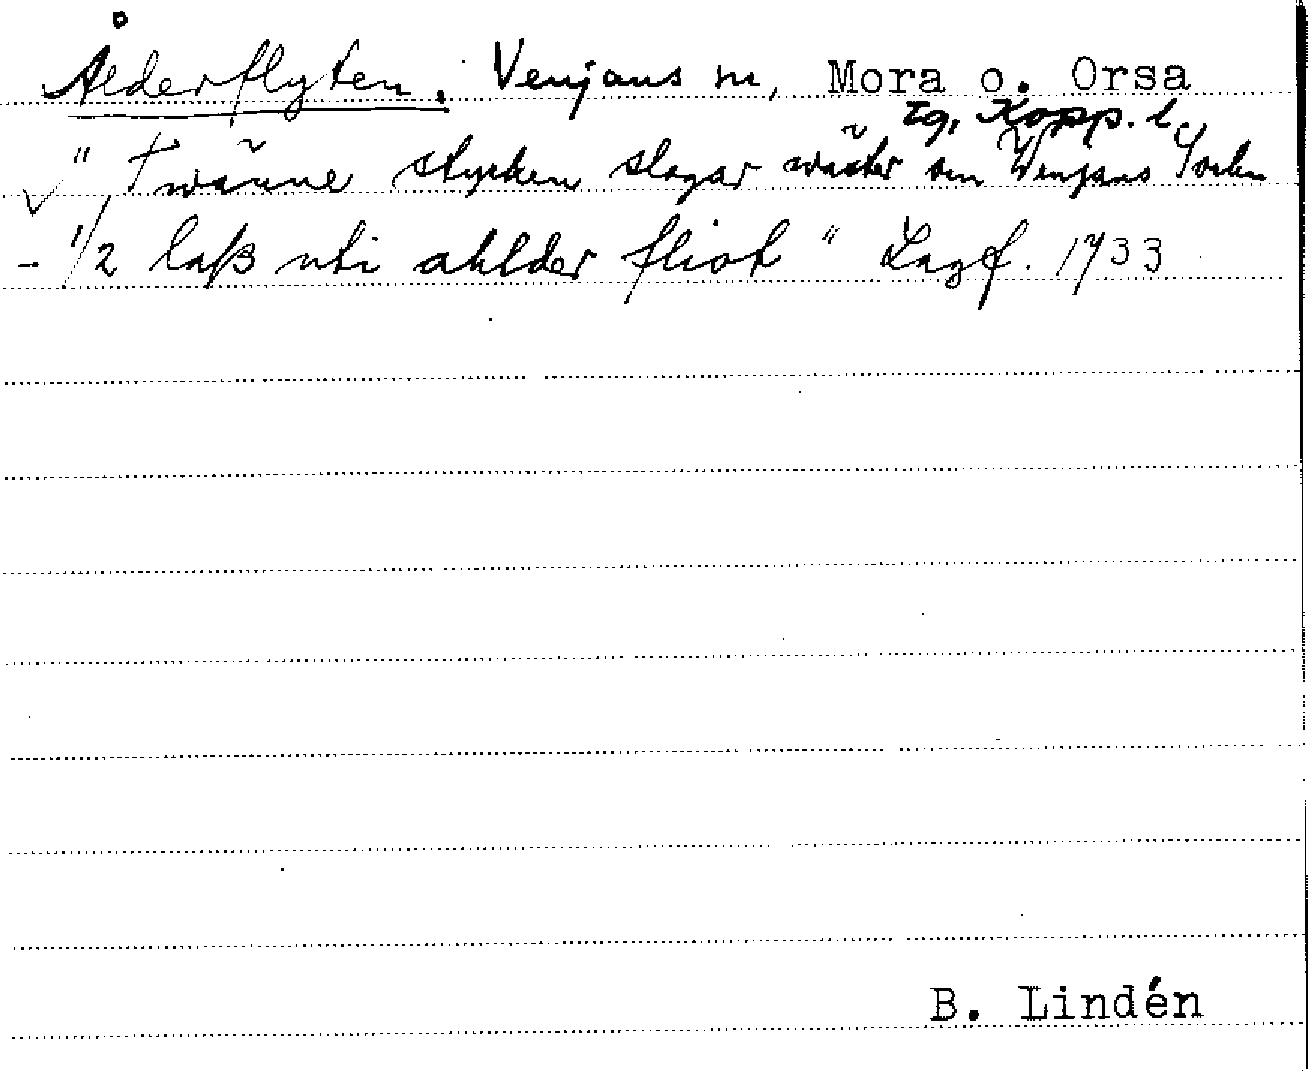 Ålderflyten. Venjans sn, Mora o. Orsa
tg, Kopp. l.
" Twänne stycken slagar wäster om Wenjans Sochn
- 1/2 laß uti ahlder fliot " Lagf. 1733
B. Lindén